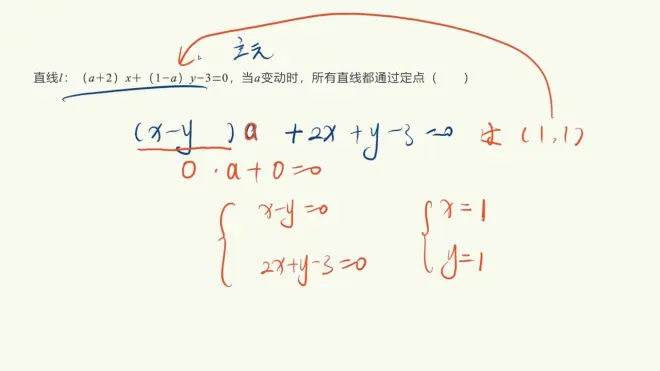 主元
直线l：（a+2）x+（1−a）y−3=0，当a变动时，所有直线都通过定点（　　）
(x−y )a +2x+y−3=0 过(1,1)
0·a+0=0
x−y=0 x=1
2x+y−3=0 y=1